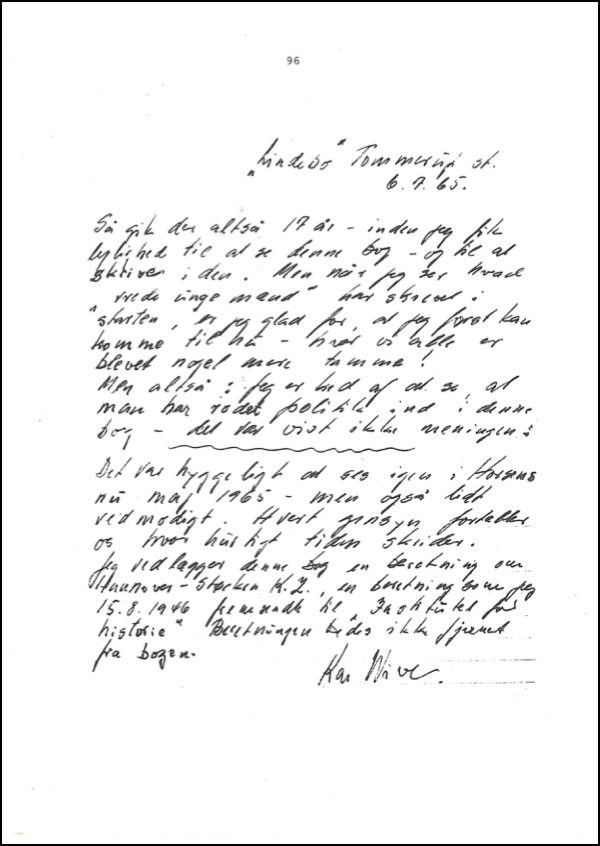 96
"Lindebo" Tommerup st.
6.7.65.
Så gik der altså 17 år - inden jeg fik
lejlighed til at se denne bog - og til at
skrive i den. Men når jeg ser hvad
"vrede unge mænd" har skrevet i
starten, er jeg glad for, at jeg først kan
komme til nu - hvor vi alle er
blevet noget mere tamme!
Men altså: Jeg er ked af at se, at
man har rodet politik ind i denne
bog - det var vist ikke meningen!
Det var hyggeligt at ses igen i Horsens
nu maj 1965 - men også lidt
vedmodigt. Hvert gensyn fortæller
os hvor hurtigt tiden skrider.
Jeg vedlægger denne bog en beretning om
Hannover-Stöcken K.Z., en beretning som jeg
15.8.1946 fremsendte til "Institutet for
historie" Beretningen bedes ikke fjernet
fra bogen.
Kai